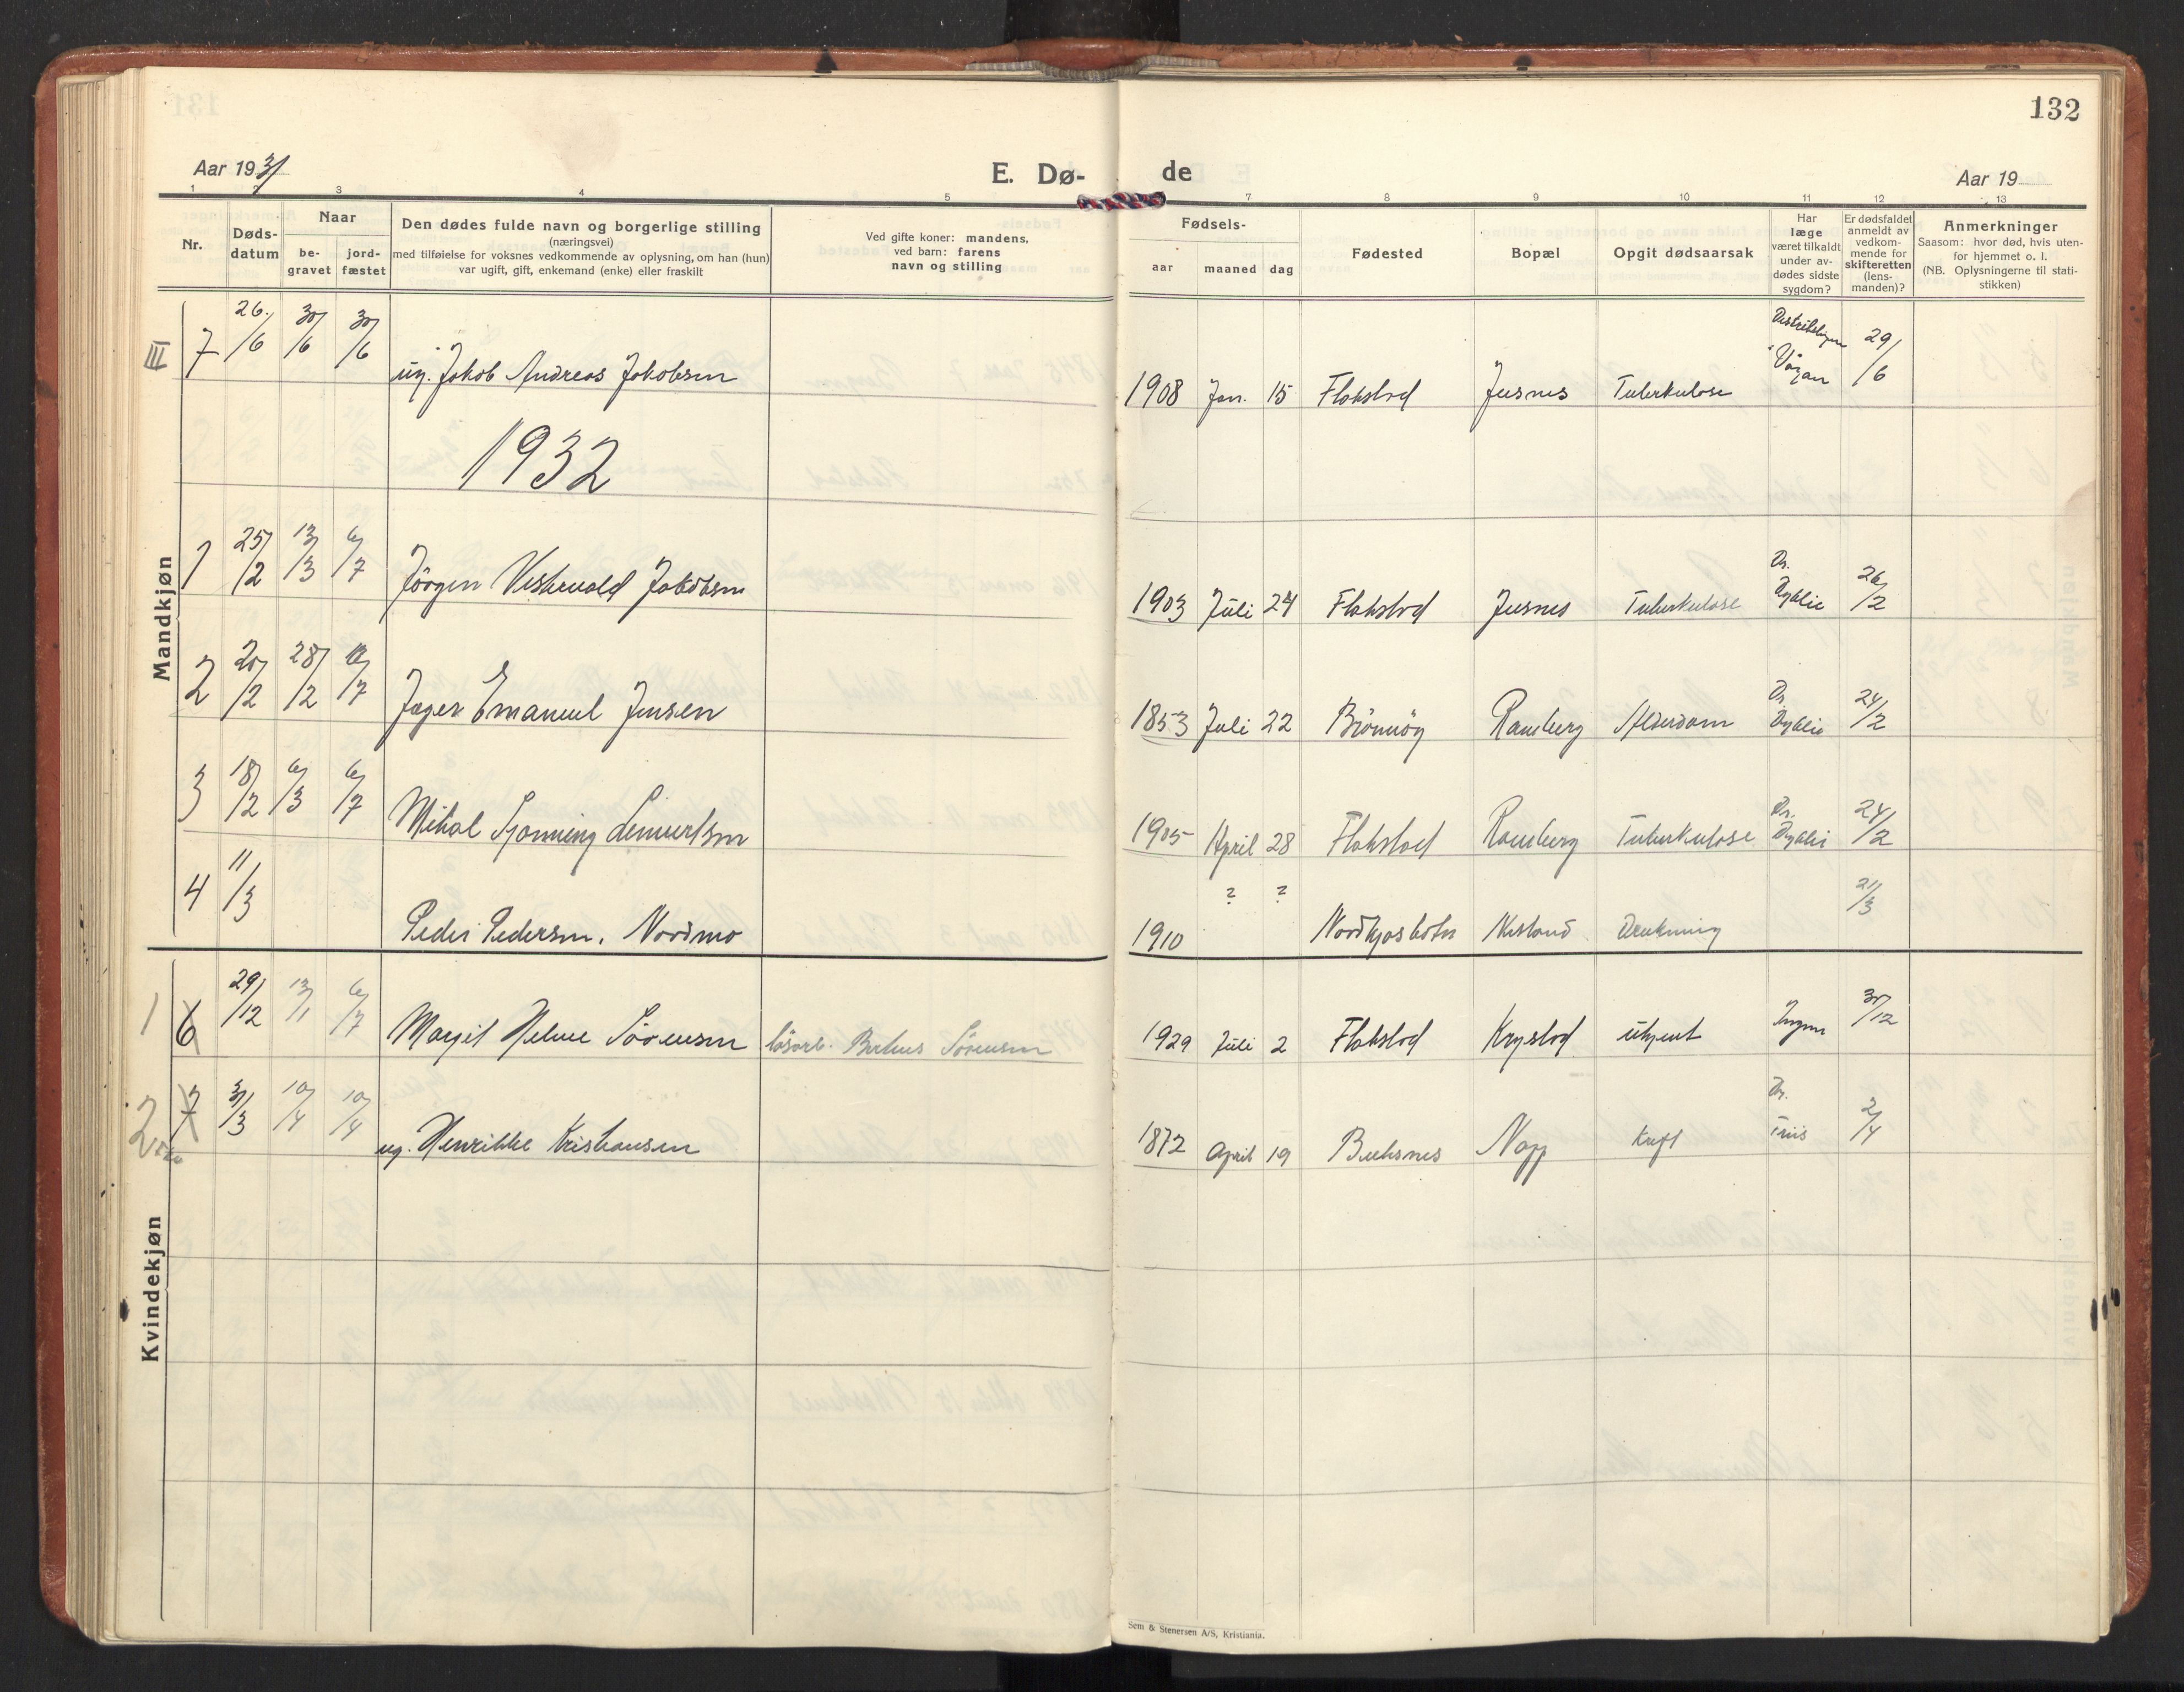 132
Aar 1931
E. Dø-
de
Aar 19
1 2 3 4 5 7 8 9 10 11 12 13
Nr.
Døds-
datum
Naar
be-
gravet
jord-
fæstet
Den dødes fulde navn og borgerlige stilling
(næringsvei)
med tilføielse for voksnes vedkommende av oplysning, om han (hun)
var ugift, gift, enkemand (enke) eller fraskilt
Ved gifte koner: mandens,
ved barn: farens
navn og stilling
Fødsels-
aar maaned dag
Fødested
Bopæl
Opgit dødsaarsak
Har
læge
været tilkaldt
under av-
dødes sidste
sygdom?
Er dødsfaldet
anmeldt av
vedkom-
mende for
skifteretten
(lens-
manden)?
Anmerkninger
Saasom: hvor død, hvis uten-
for hjemmet o. l.
(NB. Oplysningerne til stati-
stikken)
Mandkjøn
III 7 26./6 30/6 30/6 ug. Jakob Andreas Jakobsen 1908 Jan. 15 Flakstad Jusnes Tuberkulose 29/6
1932
1 25/2 13/3 6/7 Jörgen Jakobsen 1903 Juli 24 Flakstad Jusnes Tuberkulose Dr. Dyblie 26/2
2 20/2 28/2 /7 Jager Emanuel Jensen 1853 Juli 22 Brönnöy Ramberg Alderdom Dr. Dyblie 24/2
3 18/2 6/3 6/7 Mikal Lennertsen 1905 April 28 Flakstad Ramberg Tuberkulose Dr. Dyblie 24/2
4 11/3 Peder Pedersen. Nordmo 1910 ? ? Nordkjosbotn Nesland Drukning 21/3
Kvindekjøn
1 6 29/12 13/1 6/7 Margit Helene Sörensen lösarb. Sörensen 1929 Juli 2 Flakstad Krystad ukjent Ingen 30/12
2 7 31/3 10/4 10/4 ug. Henrikke Kristiansen 1872 April 19 Buksnes Napp Kreft Dr. Friis 2/4
Sem & Stenersen A/S, Kristiania.